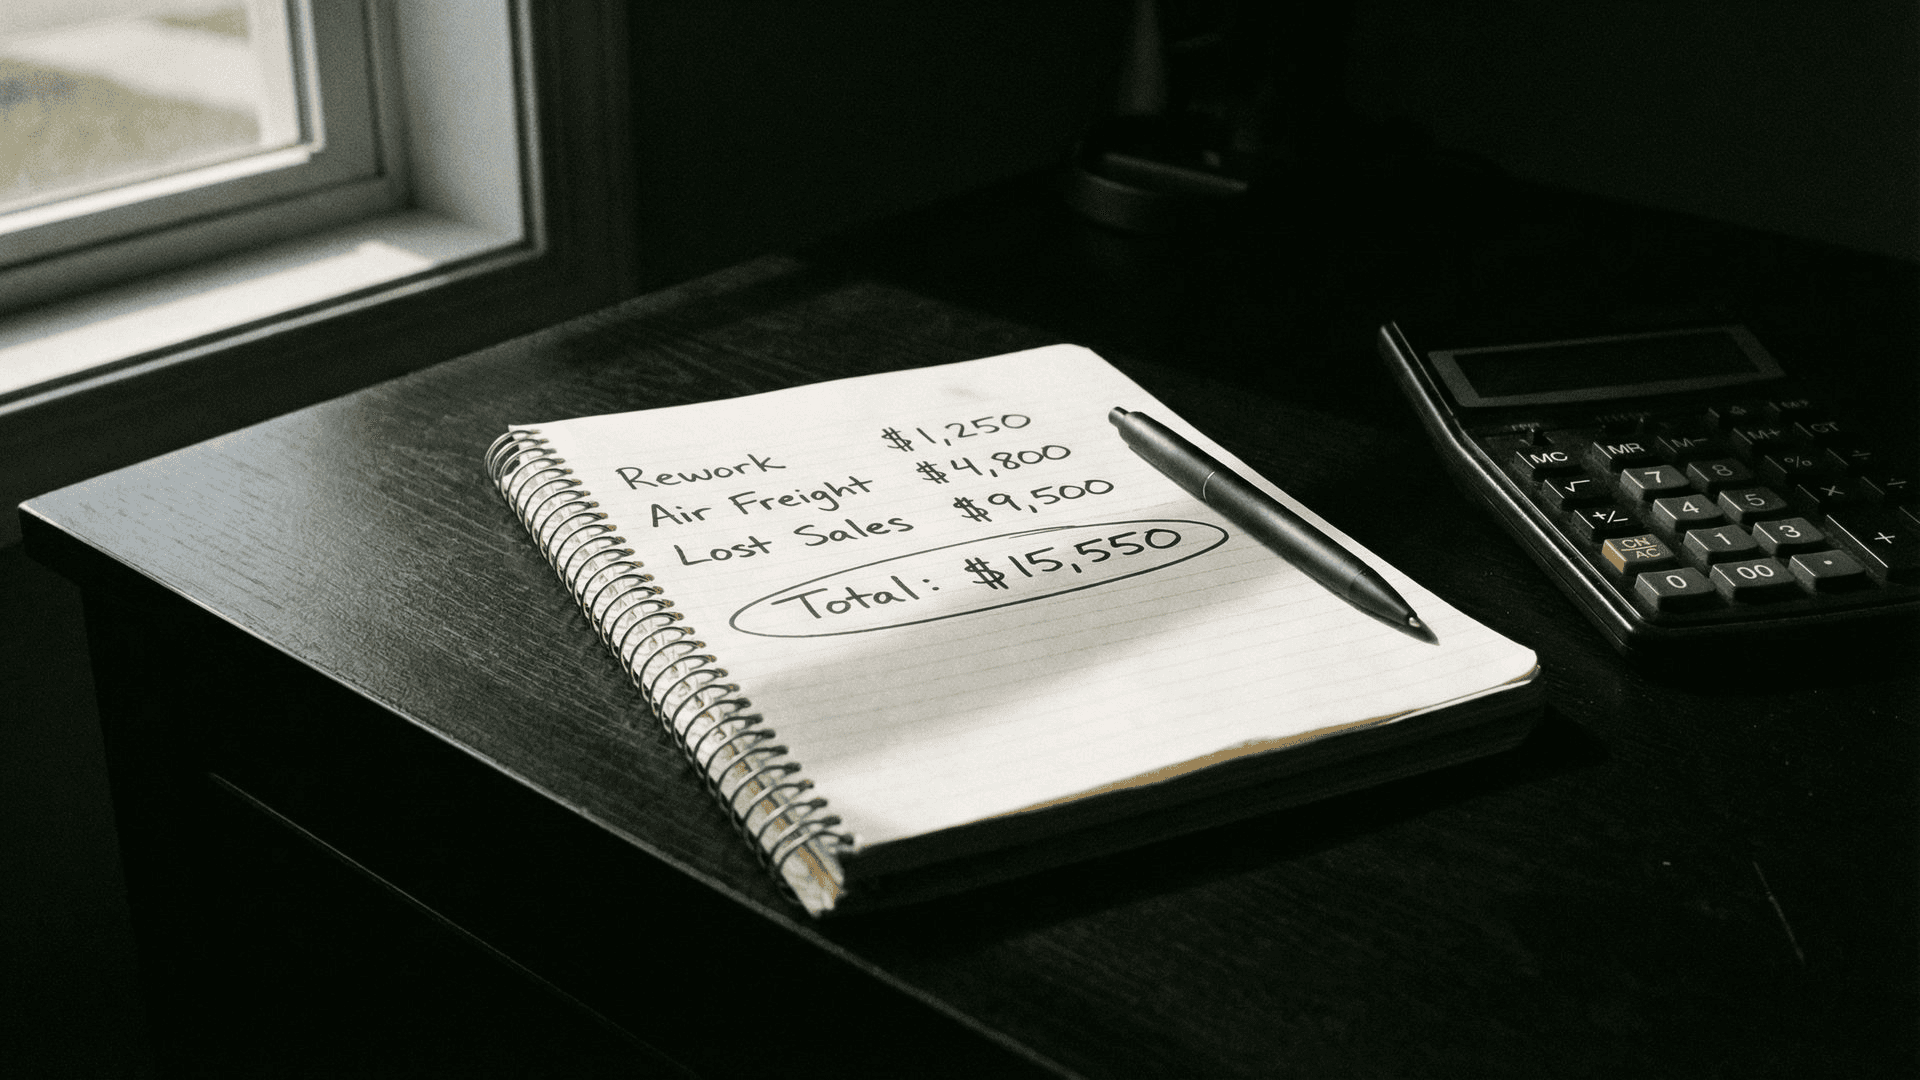 Rework $1,250
Air Freight $4,800
Lost Sales $9,500
Total: $15,550
MC MR M- M+ GT
√ 7 8 % ÷
+/- 4 5 × ÷
CN/AC 1 3 +
0 00 .